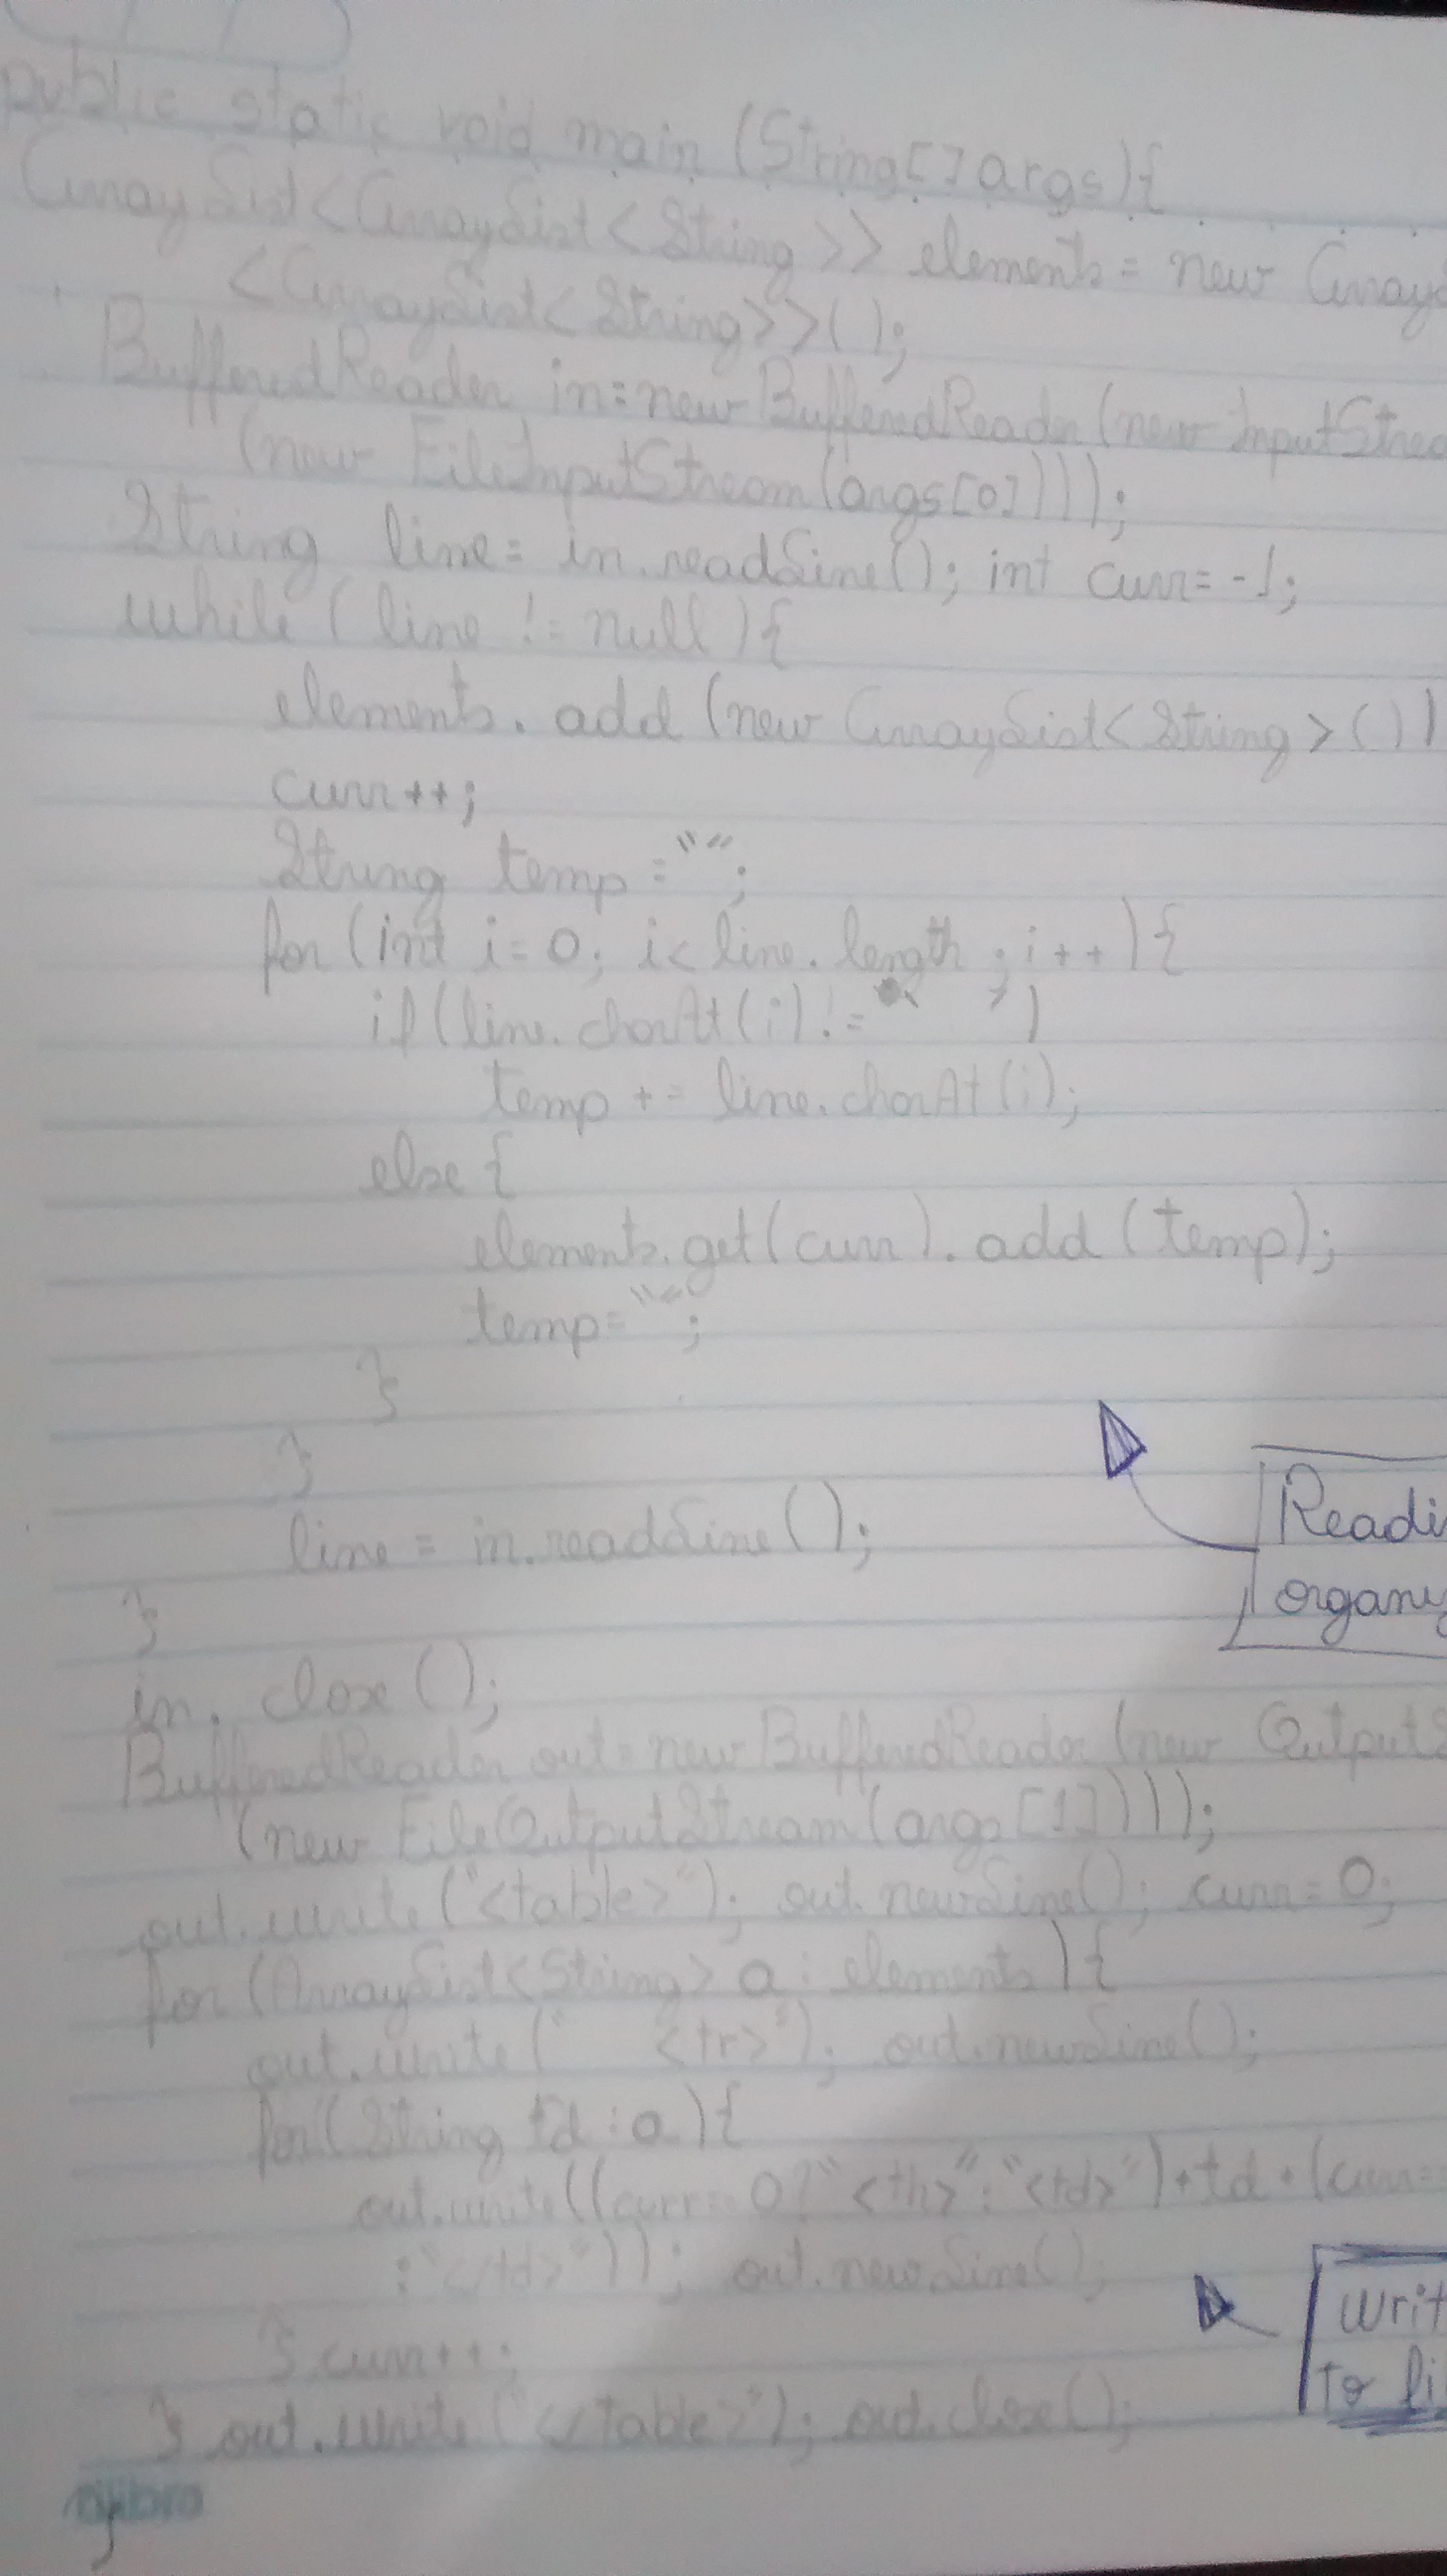 public static void main (String[] args){
ArrayList<ArrayList<String>> elements = new Array
<ArrayList<String>>();
BufferedReader in=new BufferedReader (new InputStrea
(new FileInputStream(args[0])));
String line= in.readLine(); int curr=-1;
while (line != null){
elements.add (new ArrayList<String>())
curr++;
String temp = "";
for (int i=0; i<line.length ; i++){
if (line.charAt(i) != ' ')
temp += line.charAt(i);
else {
elements.get(curr).add (temp);
temp="";
}
}
line = in.readLine();
}
Readi
organi
in. close ();
BufferedReader out=new BufferedReader (new OutputS
(new FileOutputStream(args[1])));
out.write("<table>"); out.newLine(); curr=0;
for (ArrayList<String> a : elements){
out.write(" <tr>"); out.newLine();
for (String td : a){
out.write((curr==0?"<th>":"<td>")+td+(curr=
:"</td>")); out.newLine();
} curr++;
writ
to fi
} out.write("</table>"); out.close();